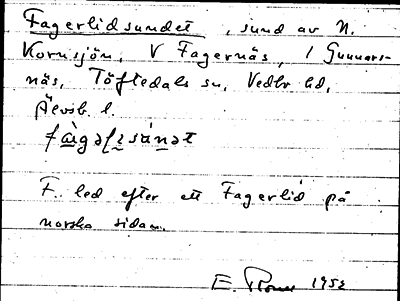 Fagerlidsundet, sund av N.
Kornsjön, V Fagernäs, i Gunnars-
näs, Töftedals sn, Vedbo hd,
Älvsb. l.
fàgəlisánət
F. led efter ett Fagerlid på
norska sidan.
E. 1952